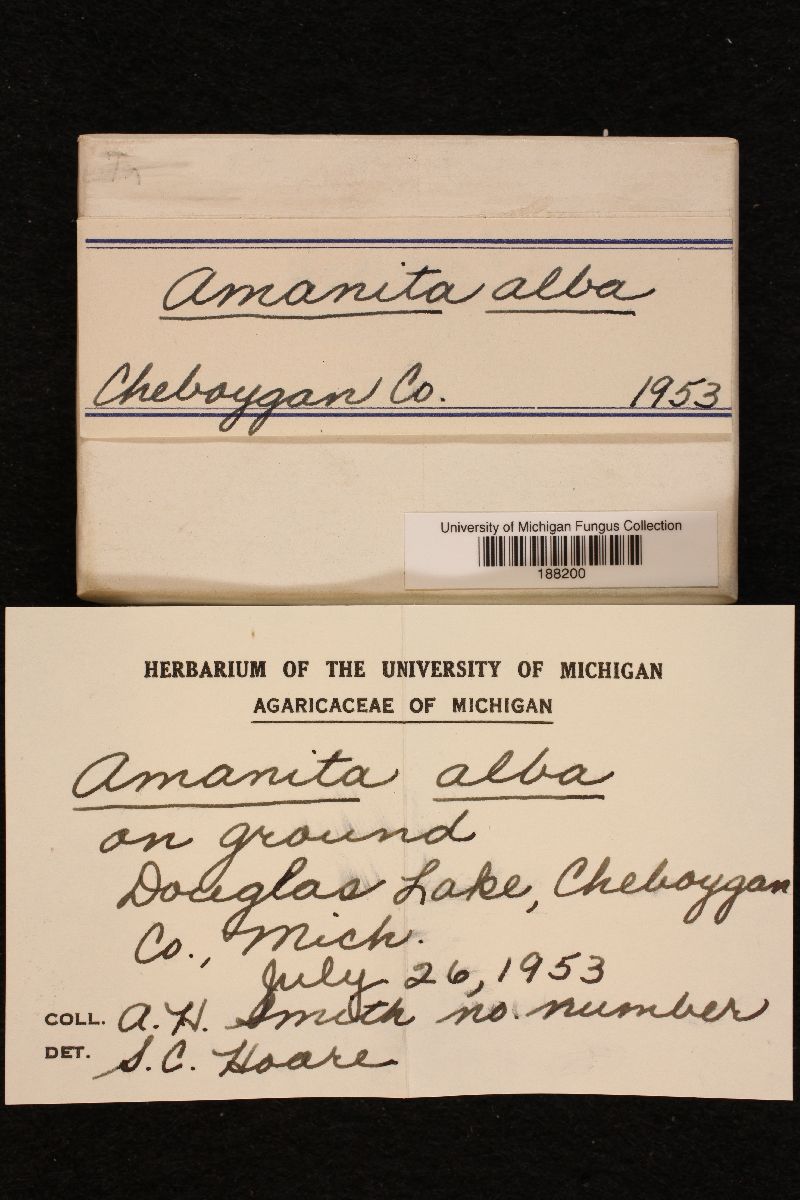 Amanita alba
Cheboygan Co. 1953
University of Michigan Fungus Collection
188200
HERBARIUM OF THE UNIVERSITY OF MICHIGAN
AGARICACEAE OF MICHIGAN
Amanita alba
on ground
Douglas Lake, Cheboygan
Co., Mich.
July 26, 1953
COLL. A. H. Smith no number
DET. S. C. Hoare